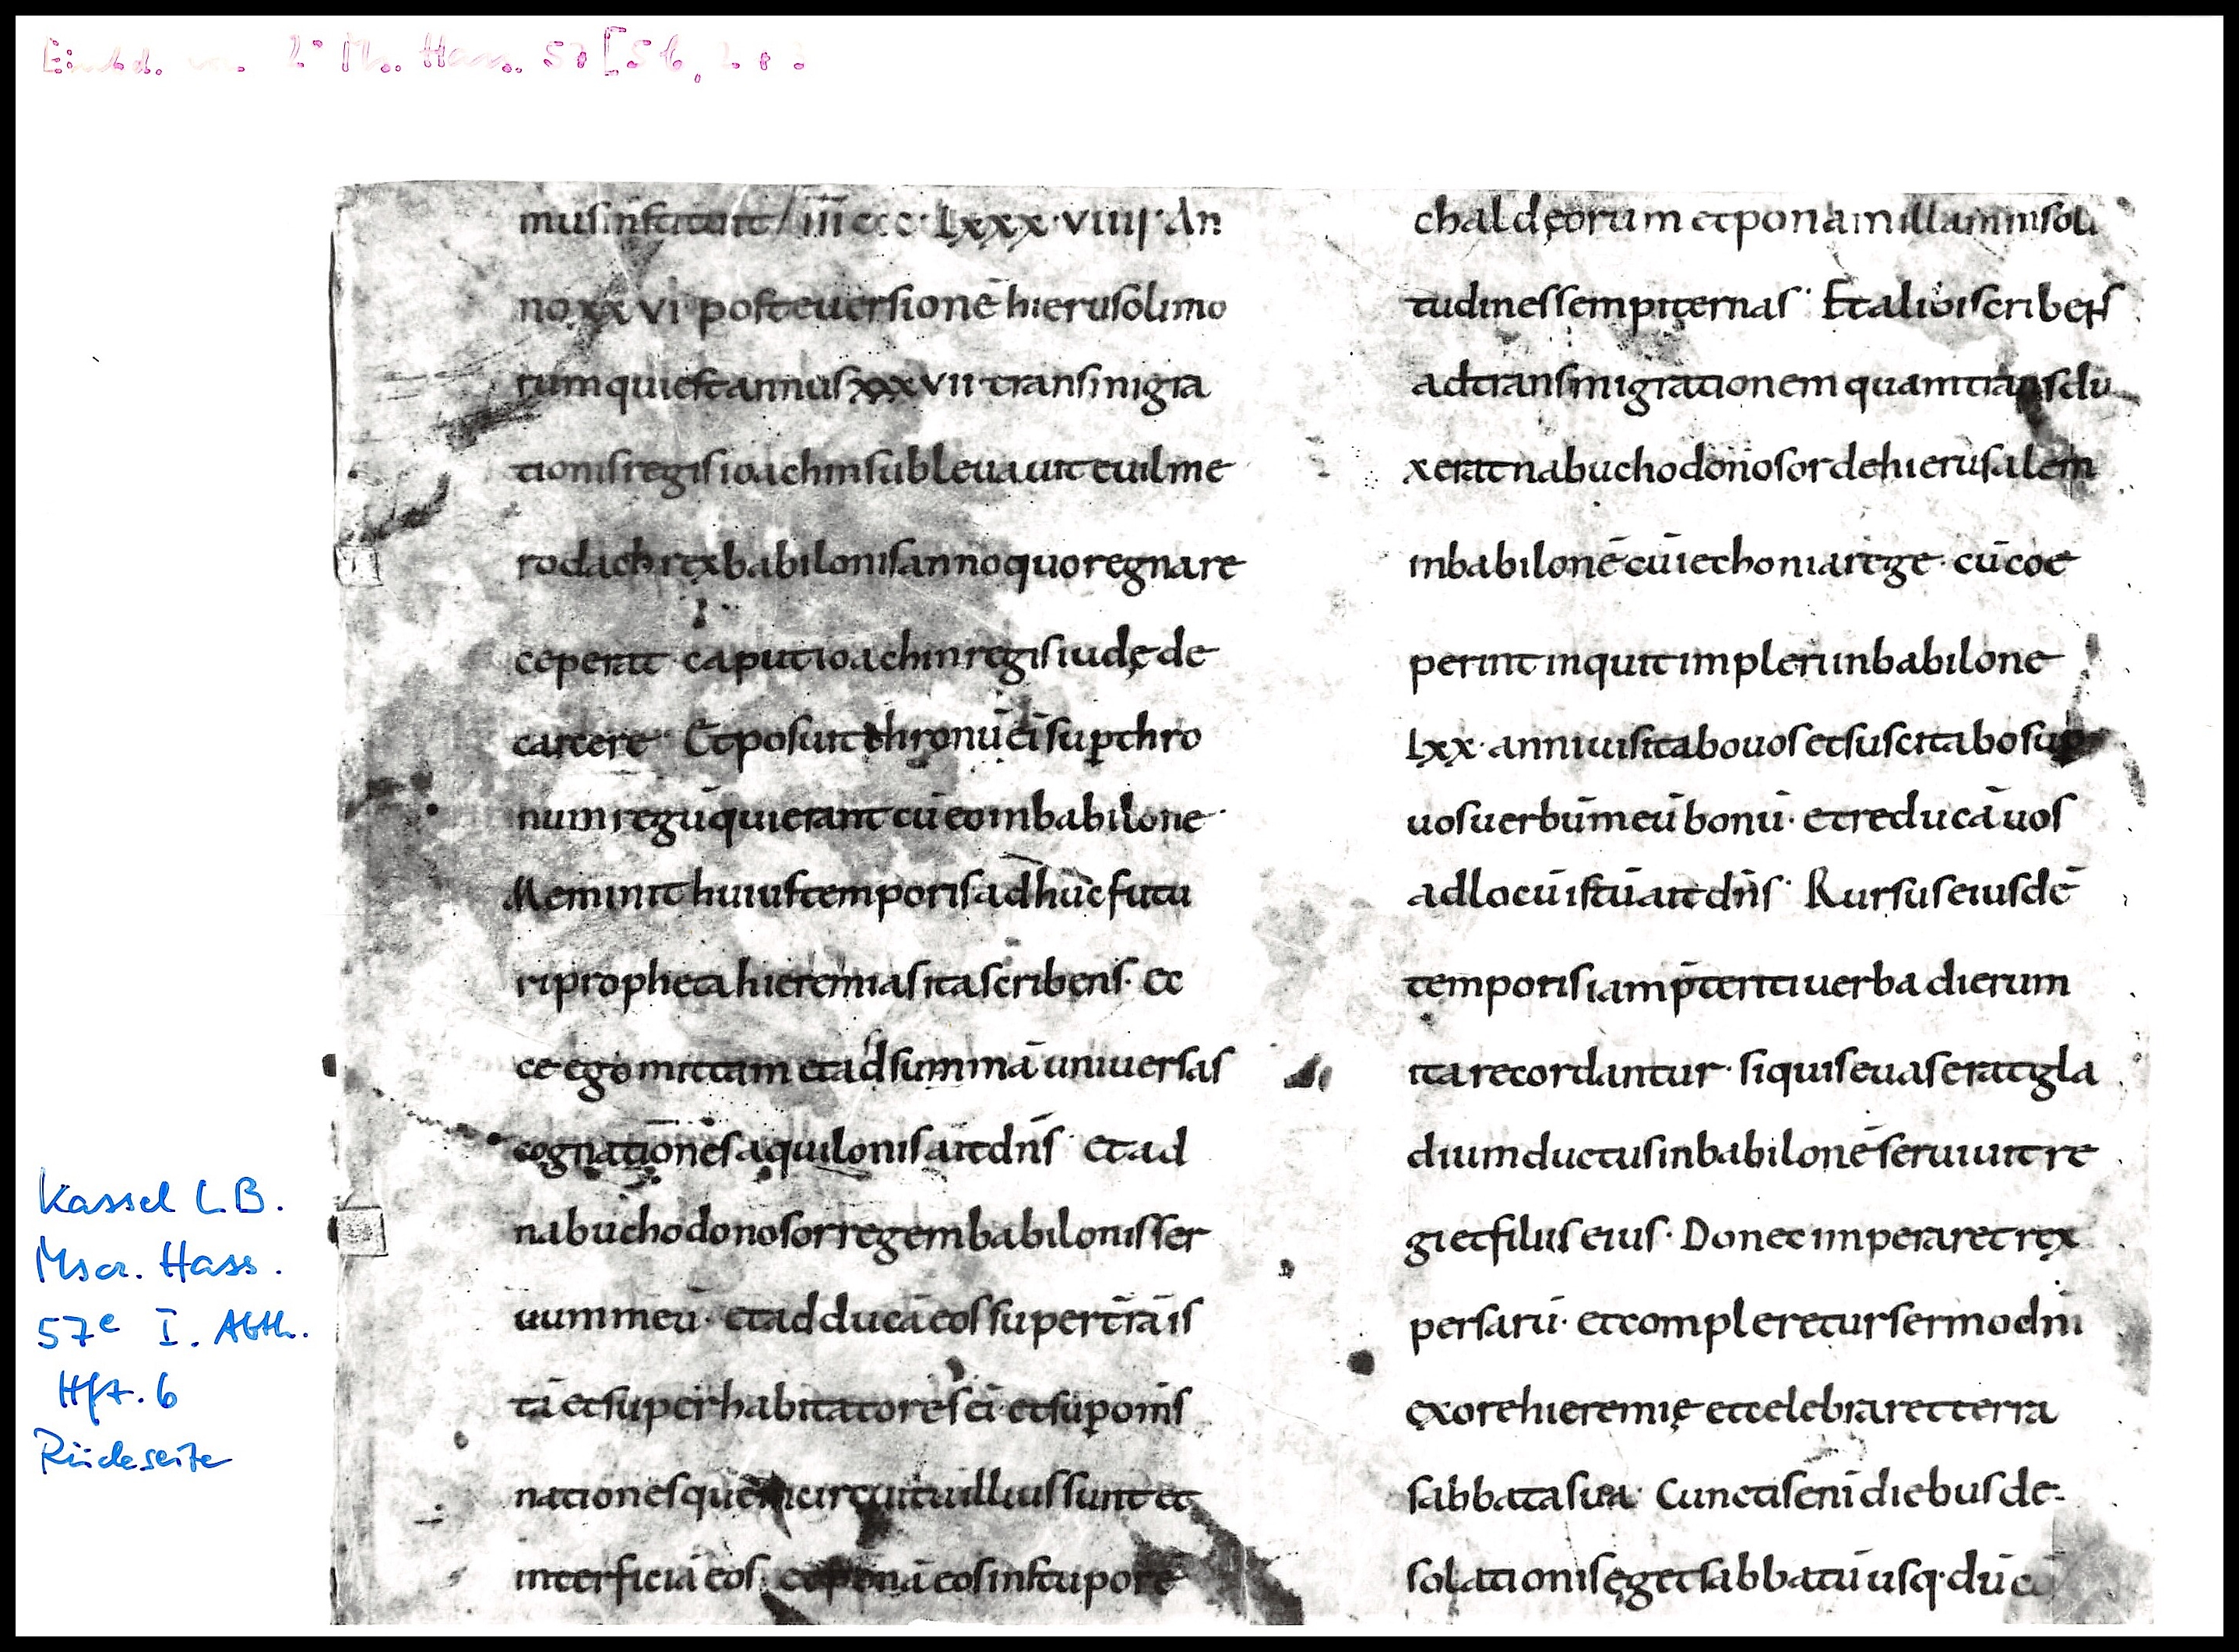 musinstituit / iii ccc · Lxxx · viiii · An
no xxvi post euersionē hierusolimo
rum qui est annus xxxvii · transmigra
tionis regis ioachin subleuauit euilme
rodach rex babilonis anno quo regnare
ceperat · caput ioachin regis iudę de
carcere · Et posuit thronū ei sup thro
num regū qui erant cū eo in babilone ·
Meminit huius temporis adhuc futu
ri propheta hieremias ita scribens · ec
ce ego mittam et adsummā uniuersas
cognationes aquilonis ait dn̄s · Et ad
nabuchodonosor regem babilonis ser
uum meū · et adducā eos super trā is
tā et super habitatores ei · et sup om̄s
nationes que in circuitu illius sunt et
interficiā eos · et ponā eos in stupore
chaldęorum et ponam illam in soli
tudines sempiternas · Et alibi scribens
ad transmigrationem quam transdu
xerat nabuchodonosor de hierusalem
in babilonē cū iechonia rege · cū coe
perint inquit impleri in babilone
Lxx · anni uisitabo uos et suscitabo sup
uos uerbūm meū bonū · et reducā uos
ad locū istū ait dn̄s · Rursus eiusdē
temporis iam p̄teriti uerba dierum
ita recordantur · siquis euaserat gla
dium ductus in babilonē seruiuit re
gi et filiis eius · Donec imperaret rex
persarū · et compleretur sermo dni
ex ore hieremię et celebraret terra
sabbata sua · Cunctis eni diebus de
solationis eget sabbatū usq · dū
Kassel LB.
Mscr. Hass.
57e I. Abth.
Hft. 6
Rückseite